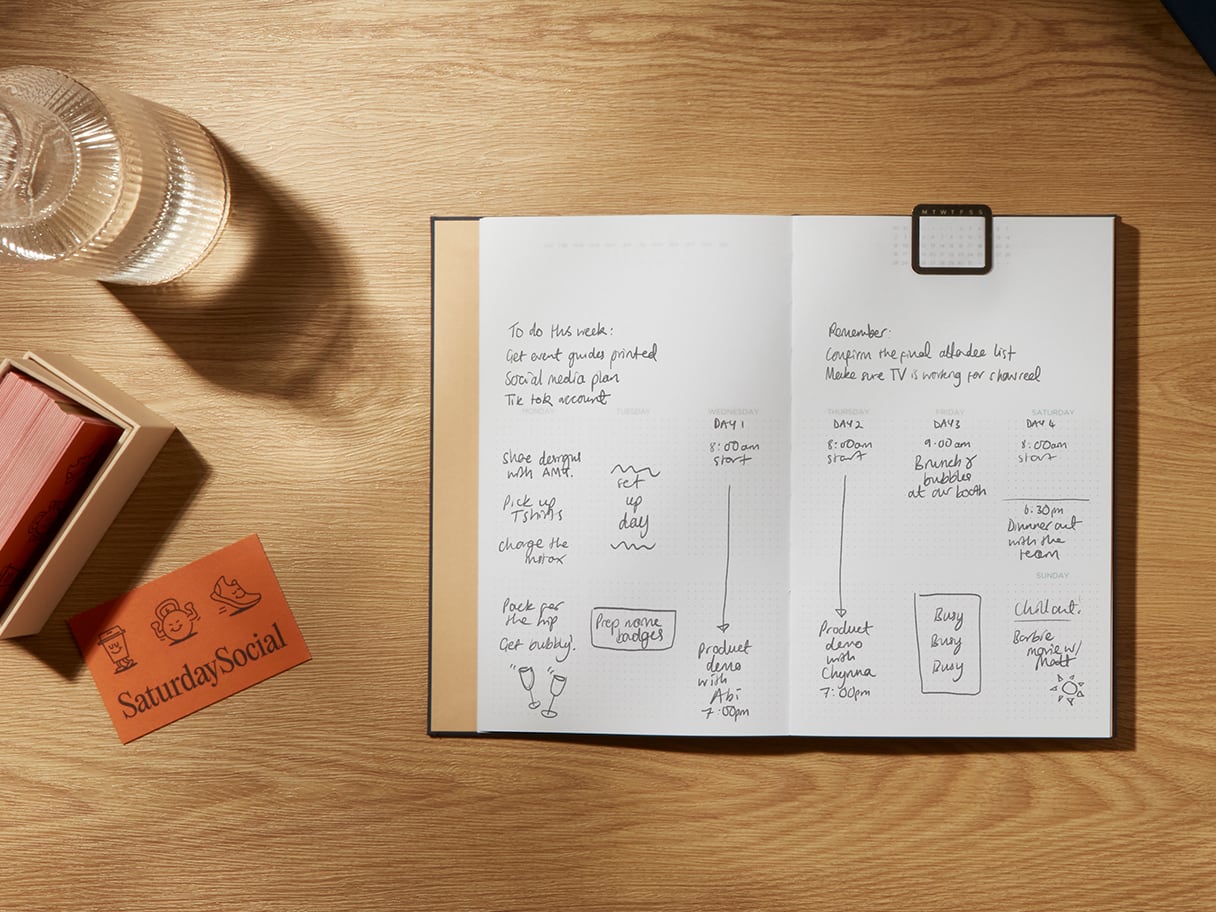 To do this week:
Get event guides printed
Social media plan
Tik tok account
MONDAY
Share designs
with AMY.
Pick up
Tshirts
charge the
instax
Pack for
the trip
Get bubbly!
TUESDAY
set
up
day
Prep name
badges
WEDNESDAY
DAY 1
8:00am
start
Product
demo
with
Abi
7:00pm
M T W T F S S
Remember:
Confirm the final attendee list
Make sure TV is working for showreel
THURSDAY
DAY 2
8:00am
start
Product
demo
with
Chynna
7:00pm
FRIDAY
DAY 3
9:00am
Brunch &
bubbles
at our booth
Busy
Busy
Busy
SATURDAY
DAY 4
8:00am
start
6:30pm
Dinnner out
with the
team
SUNDAY
Chill out!
Barbie
movie w/
Matt
SaturdaySocial